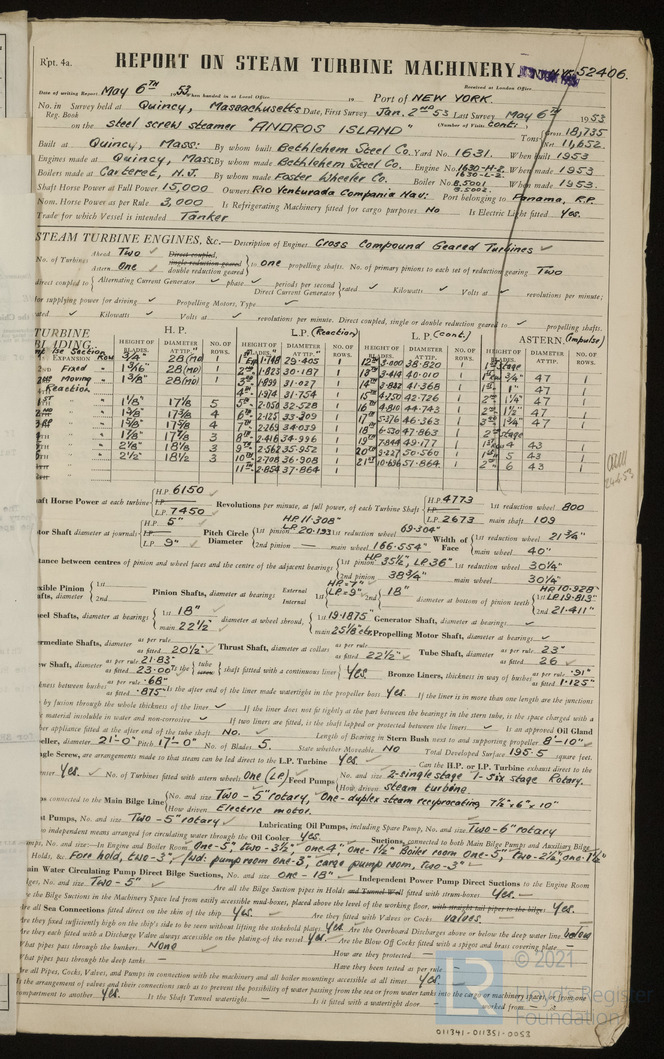 Rpt. 4a.
REPORT ON STEAM TURBINE MACHINERY. No. N.Y. 52406.
Date of writing Report May 6TH 1953 When handed in at Local Office Received at London Office
Port of NEW YORK.
No. in Survey held at Quincy, Massachusetts. Date, First Survey Jan. 2ND 53 Last Survey May 6TH 1953
Reg. Book (Number of Visits Conti.)
on the steel screw steamer "ANDROS ISLAND" Tons Gross 18,735
Net 11,652
Built at Quincy, Mass: By whom built Bethlehem Steel Co. Yard No. 1631. When built 1953
Engines made at Quincy, Mass. By whom made Bethlehem Steel Co. Engine No. 1630-H-2. 1630-L-2. When made 1953.
Boilers made at Carteret, N.J. By whom made Foster Wheeler Co. Boiler No. B.5001 B.5002. When made 1953.
Shaft Horse Power at Full Power 15,000 Owners Rio Venturada Compania Nav: Port belonging to Panama, R.P.
Nom. Horse Power as per Rule 3,000 Is Refrigerating Machinery fitted for cargo purposes No Is Electric Light fitted Yes.
Trade for which Vessel is intended Tanker
STEAM TURBINE ENGINES, &c.—Description of Engines Cross Compound Geared Turbines ✓
No. of Turbines Ahead Two ✓ Direct coupled, single reduction geared double reduction geared to one propelling shafts. No. of primary pinions to each set of reduction gearing Two
Astern One ✓
direct coupled to Alternating Current Generator ✓ phase ✓ periods per second Direct Current Generator rated ✓ Kilowatts ✓ Volts at ✓ revolutions per minute;
for supplying power for driving ✓ Propelling Motors, Type ✓
rated ✓ Kilowatts ✓ Volts at ✓ revolutions per minute. Direct coupled, single or double reduction geared to ✓ propelling shafts.
TURBINE BLADING. H.P. L.P. (Reaction) L.P. (cont.) ASTERN. (Impulse)
HEIGHT OF BLADES. DIAMETER AT TIP. NO. OF ROWS.
1ST EXPANSION Row 3/4" 28 (MD) 1.748 29.405 1 12TH 3.000 38.820 1 1ST Stage
2ND Fixed 1 3/16" 28 (MD) 2ND 1.823 30.187 1 13TH 3.414 40.010 1 3/4" 47 1
2ND Moving 1 3/8" 28 (MD) 3RD 1.899 31.027 1 14TH 3.832 41.368 1 1" 47 1
Reaction 4TH 1.974 31.754 1 15TH 4.250 42.726 1 2ND 1 1/4" 47 1
1ST 1 1/8" 17 5/8 5 5TH 2.050 32.528 1 16TH 4.810 44.743 1 2ND 1 1/2" 47 1
2ND 1 3/8" 17 5/8 4 6TH 2.125 33.309 1 17TH 5.376 46.363 1 1 3/4" 47 1
3RD 1 5/8" 17 5/8 4 7TH 2.269 34.039 1 18TH 6.520 47.863 1 2ND stage
1 7/8" 17 5/8 3 8TH 2.416 34.996 1 19TH 7.844 49.177 1 4 43 1
2 1/8" 18 1/8 3 9TH 2.562 35.952 1 20TH 9.227 50.560 1 5 43 1
2 1/2" 18 1/2 3 10TH 2.708 36.908 1 21ST 10.696 51.864 1 2ND 6 43 1
11TH 2.854 37.864 1
Shaft Horse Power at each turbine H.P. 6150 L.P. 7450 Revolutions per minute, at full power, of each Turbine Shaft H.P. 4773 L.P. 2673 1st reduction wheel 800
main shaft 109
Rotor Shaft diameter at journals H.P. 5" L.P. 9" Pitch Circle Diameter 1st pinion HP 11.308" LP 20.193 1st reduction wheel 69.304" Width of Face 1st reduction wheel 21 3/4"
2nd pinion — main wheel 166.554" main wheel 40"
Distance between centres of pinion and wheel faces and the centre of the adjacent bearings 1st pinion HP 35 1/2", LP 36" 1st reduction wheel 30 1/4"
2nd pinion 38 3/4" main wheel 30 1/4"
Flexible Pinion Shafts, diameter 1st 2nd Pinion Shafts, diameter at bearings External Internal HP=7" LP=9" 18" diameter at bottom of pinion teeth HP 10.928" 1st LP 19.813"
2nd 21.411"
Wheel Shafts, diameter at bearings 1st 18" main 22 1/2" diameter at wheel shroud, 1st 19.1875 Generator Shaft, diameter at bearings ✓
main 25 1/8 Propelling Motor Shaft, diameter at bearings ✓
Intermediate Shafts, diameter as per rule as fitted 20 1/2" ✓ Thrust Shaft, diameter at collars as per rule as fitted 22 1/2" ✓ Tube Shaft, diameter as per rule 23" as fitted 26 ✓
Screw Shaft, diameter as per rule 21.83" as fitted 23.06" Is the tube screw shaft fitted with a continuous liner Yes. Bronze Liners, thickness in way of bushes as per rule .91" as fitted 1.125"
Thickness between bushes as per rule .68" as fitted .875" Is the after end of the liner made watertight in the propeller boss Yes. If the liner is in more than one length are the junctions
by fusion through the whole thickness of the liner ✓ If the liner does not fit tightly at the part between the bearings in the stern tube, is the space charged with a
material insoluble in water and non-corrosive ✓ If two liners are fitted, is the shaft lapped or protected between the liners ✓ Is an approved Oil Gland
or other appliance fitted at the after end of the tube shaft No. ✓ Length of Bearing in Stern Bush next to and supporting propeller 8'-10" ✓
Propeller, diameter 21'-0" Pitch 17'-0" No. of Blades 5. State whether Moveable No Total Developed Surface 195.5 square feet.
Single Screw, are arrangements made so that steam can be led direct to the L.P. Turbine Yes. ✓ Can the H.P. or L.P. Turbine exhaust direct to the
Condenser Yes. ✓ No. of Turbines fitted with astern wheels One (LP) Feed Pumps No. and size 2-single stage 1-six stage Rotary.
How driven steam turbine.
Pumps connected to the Main Bilge Line No. and size Two-5" rotary, One-duplex steam reciprocating 7 1/2"x6"x10"
How driven Electric motor.
Ballast Pumps, No. and size Two-5" rotary ✓ Lubricating Oil Pumps, including Spare Pump, No. and size Two-6" rotary
Are two independent means arranged for circulating water through the Oil Cooler Yes. Suctions, connected to both Main Bilge Pumps and Auxiliary Bilge
Pumps, No. and size:—In Engine and Boiler Room One-5", two-3 1/2" one-4" one-1 1/2" Boiler room One-5", two-2 1/2", one-1 1/2"
In Holds, &c. Fore hold, two-3", fwd: pumproom one-3", cargo pump room, two-3" ✓
Main Water Circulating Pump Direct Bilge Suctions, No. and size One-18" ✓ Independent Power Pump Direct Suctions to the Engine Room
Bilges, No. and size Two-5" ✓ Are all the Bilge Suction pipes in Holds and Tunnel Well fitted with strum-boxes Yes. ✓
Are the Bilge Suctions in the Machinery Space led from easily accessible mud-boxes, placed above the level of the working floor, with straight tail pipes to the bilges Yes. ✓
Are all Sea Connections fitted direct on the skin of the ship Yes. ✓ Are they fitted with Valves or Cocks valves. ✓
Are they fixed sufficiently high on the ship's side to be seen without lifting the stokehold plates Yes. Are the Overboard Discharges above or below the deep water line below
Are they each fitted with a Discharge Valve always accessible on the plating of the vessel Yes. ✓ Are the Blow Off Cocks fitted with a spigot and brass covering plate —
What pipes pass through the bunkers None ✓ How are they protected —
What pipes pass through the deep tanks — Have they been tested as per rule —
Are all Pipes, Cocks, Valves, and Pumps in connection with the machinery and all boiler mountings accessible at all times Yes. ✓
Is the arrangement of valves and their connections such as to prevent the possibility of water passing from the sea or from water tanks into the cargo or machinery spaces, or from one
compartment to another Yes. Is the Shaft Tunnel watertight — Is it fitted with a watertight door — worked from —
© 2021
Lloyd's Register
Foundation
LR
011341-011351-0053